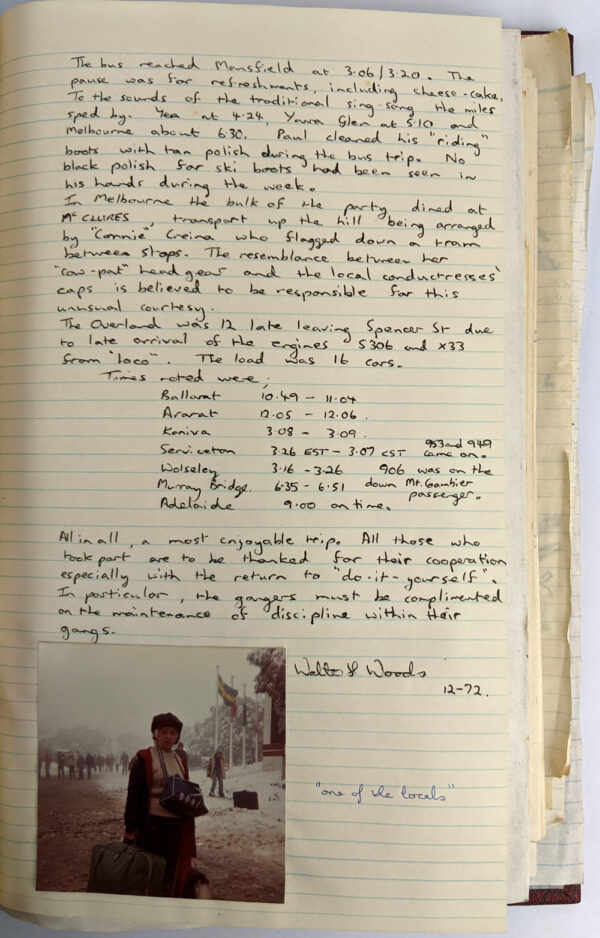 The bus reached Mansfield at 3.06/3.20. The
pause was for refreshments, including cheese-cake.
To the sounds of the traditional sing-song the miles
sped by. Yea at 4.24, Yarra Glen at 5.10 and
Melbourne about 6.30. Paul cleaned his "riding"
boots with tan polish during the bus trip. No
black polish for ski boots had been seen in
his hands during the week.
In Melbourne the bulk of the party dined at
McCLURES, transport up the hill being arranged
by "Connie" Creina who flagged down a tram
between stops. The resemblance between her
"cow-pat" head gear and the local conductresses'
caps is believed to be responsible for this
unusual courtesy.
The Overland was 12 late leaving Spencer St due
to late arrival of the engines S306 and X33
from "loco". The load was 16 cars.
Times noted were;
Ballarat 10.49 - 11.04
Ararat 12.05 - 12.06.
Kaniva 3.08 - 3.09.
Serviceton 3.26 EST - 3.07 CST 953 and 949 came on.
Wolseley 3.16 - 3.26 906 was on the
Murray Bridge. 6.35 - 6.51 down Mt. Gambier passenger.
Adelaide 9.00 on time.
All in all, a most enjoyable trip. All those who
took part are to be thanked for their cooperation
especially with the return to "do-it-yourself".
In particular, the gangers must be complimented
on the maintenance of discipline within their
gangs.
Walter Woods
12-72.
"one of the locals"